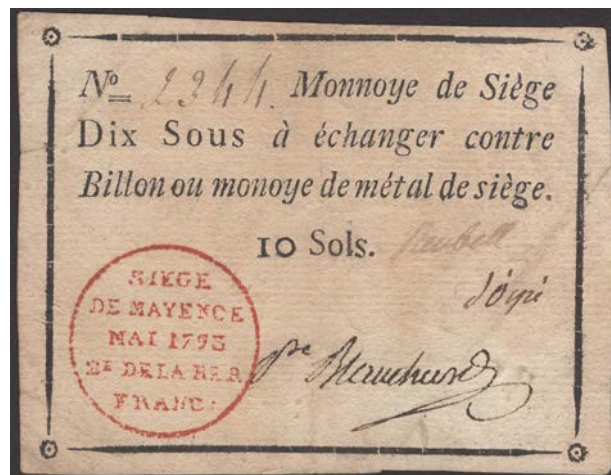 No 2344. Monnoye de Siège
Dix Sous à échanger contre
Billon ou monoye de métal de siège.
10 Sols. Reubell
SIEGE
DE MAYENCE
MAI 1793
2E DE LA REP
FRANC: